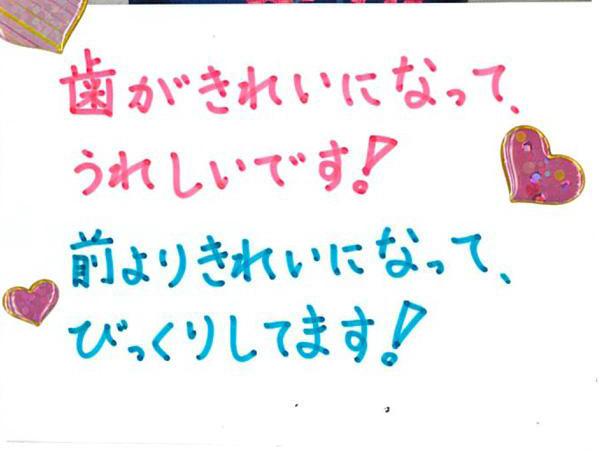 歯がきれいになって、
うれしいです！
前よりきれいになって、
びっくりしてます！